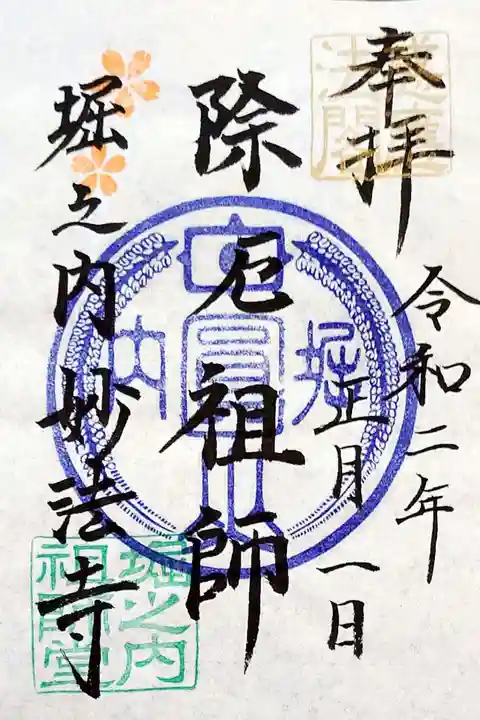 奉拝
令和二年
正月一日
除厄祖師
堀之内妙法寺
堀之内
祖師堂
堀
内